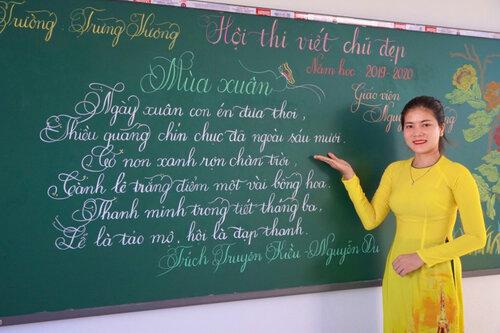 Trường Trưng Vương
Hội thi viết chữ đẹp
Năm học 2019-2020
Giáo viên
Mùa xuân
Ngày xuân con én đưa thoi,
Thiều quang chín chục đã ngoài sáu mươi.
Cỏ non xanh rợn chân trời,
Cành lê trắng điểm một vài bông hoa.
Thanh minh trong tiết tháng ba,
Lễ là tảo mộ, hội là đạp thanh.
Trích Truyện Kiều - Nguyễn Du